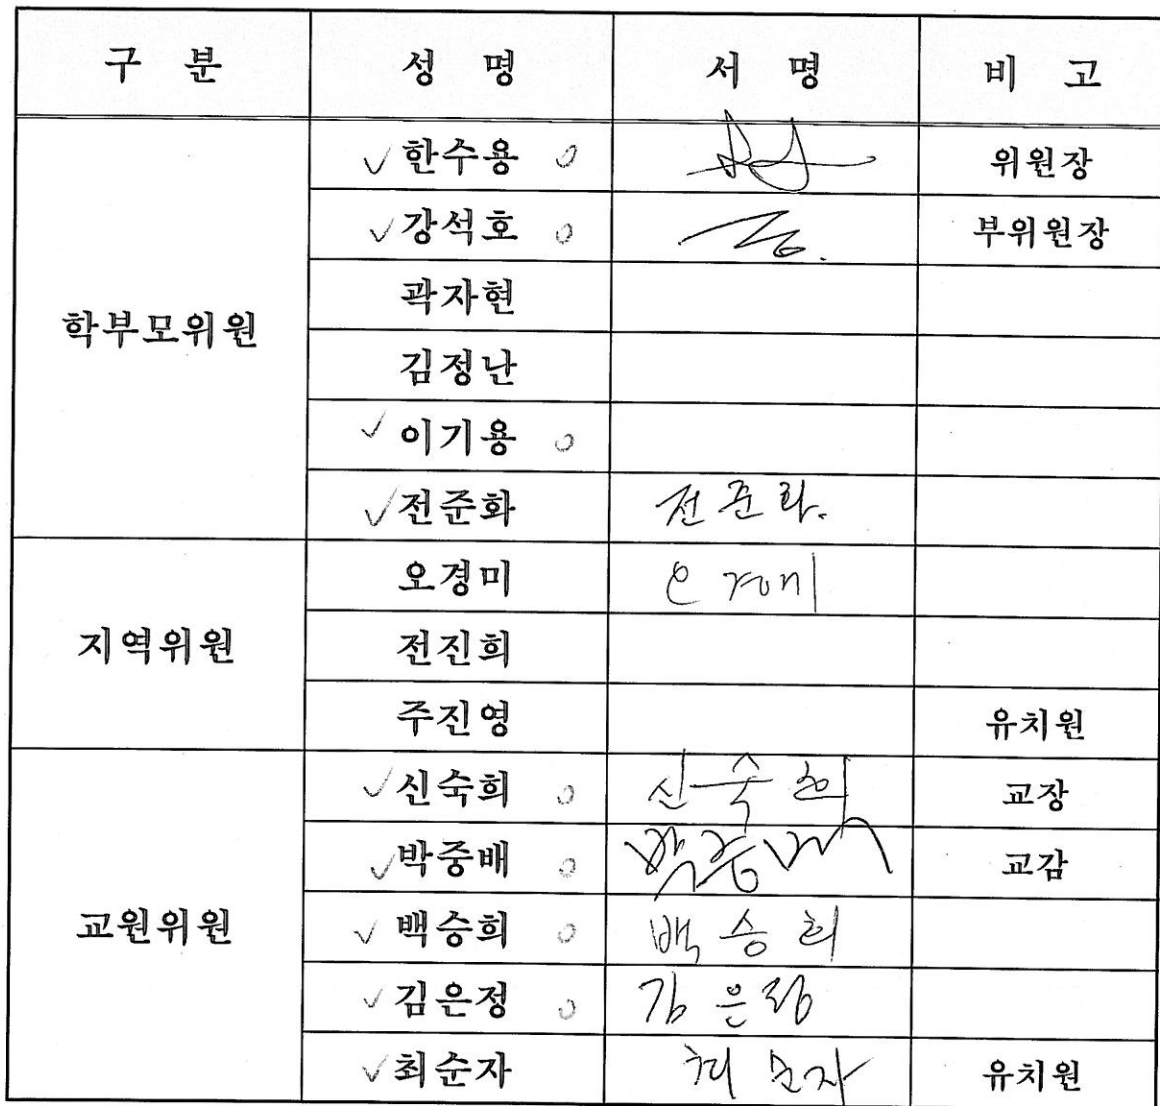 구 분 성 명 서 명 비 고
학부모위원
✓ 한수용 o 위원장
✓ 강석호 o 부위원장
곽자현
김정난
✓ 이기용 o
✓ 전준화 전준화.
지역위원
오경미 오경미
전진희
주진영 유치원
교원위원
✓ 신숙희 o 신숙희 교장
✓ 박중배 o 박중배 교감
✓ 백승희 o 백승희
✓ 김은정 o 김은정
✓ 최순자 최순자 유치원